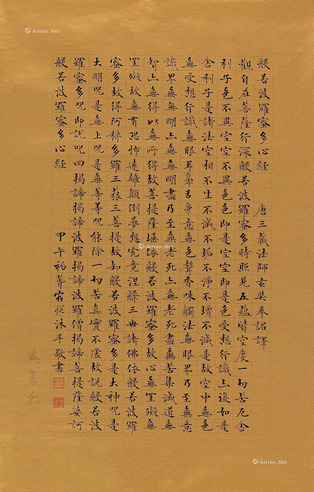 般若波羅蜜多心經 唐三藏法師玄奘奉詔譯
觀自在菩薩行深般若波羅蜜多時照見五蘊皆空度一切苦厄舍
利子色不異空空不異色色即是空空即是色受想行識亦復如是
舍利子是諸法空相不生不滅不垢不淨不增不減是故空中無色
無受想行識無眼耳鼻舌身意無色聲香味觸法無眼界乃至無意
識界無無明亦無無明盡乃至無老死亦無老死盡無苦集滅道無
智亦無得以無所得故菩提薩埵依般若波羅蜜多故心無罣礙無
罣礙故無有恐怖遠離顛倒夢想究竟涅槃三世諸佛依般若波羅
蜜多故得阿耨多羅三藐三菩提故知般若波羅蜜多是大神咒是
大明咒是無上咒是無等等咒能除一切苦真實不虛故說般若波
羅蜜多咒即說咒曰揭諦揭諦波羅揭諦波羅僧揭諦菩提薩婆訶
般若波羅蜜多心經 甲午初
沐手敬書
Artron.Net
Artron.Net
Artron.Net